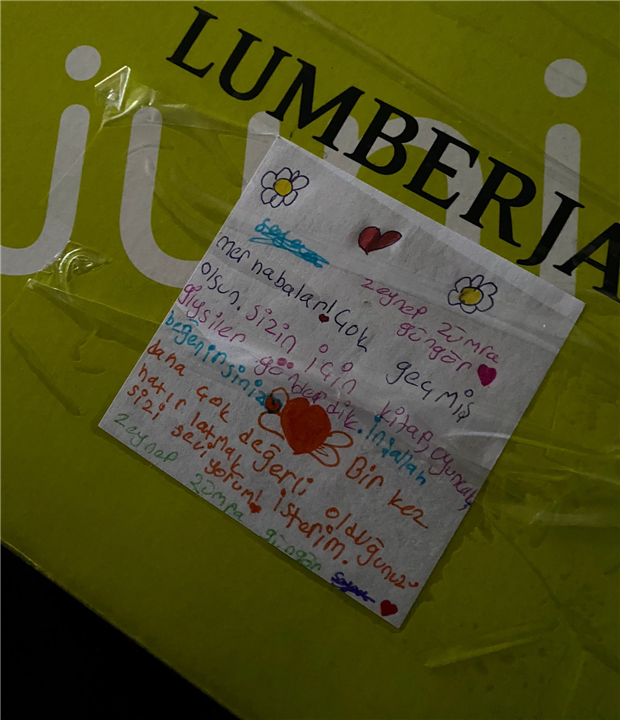 LUMBERJA
juni
zeynep zümra
güngör
mer habalar! Çok geçmiş
olsun. sizin için kitap, oyuncak,
giysiler gönderdik. İnşallah
beğenirsiniz. Bir kez
daha çok değerli olduğunuzu
hatır latmak isterim.
sizi sevi yorum!
zeynep zümra güngör